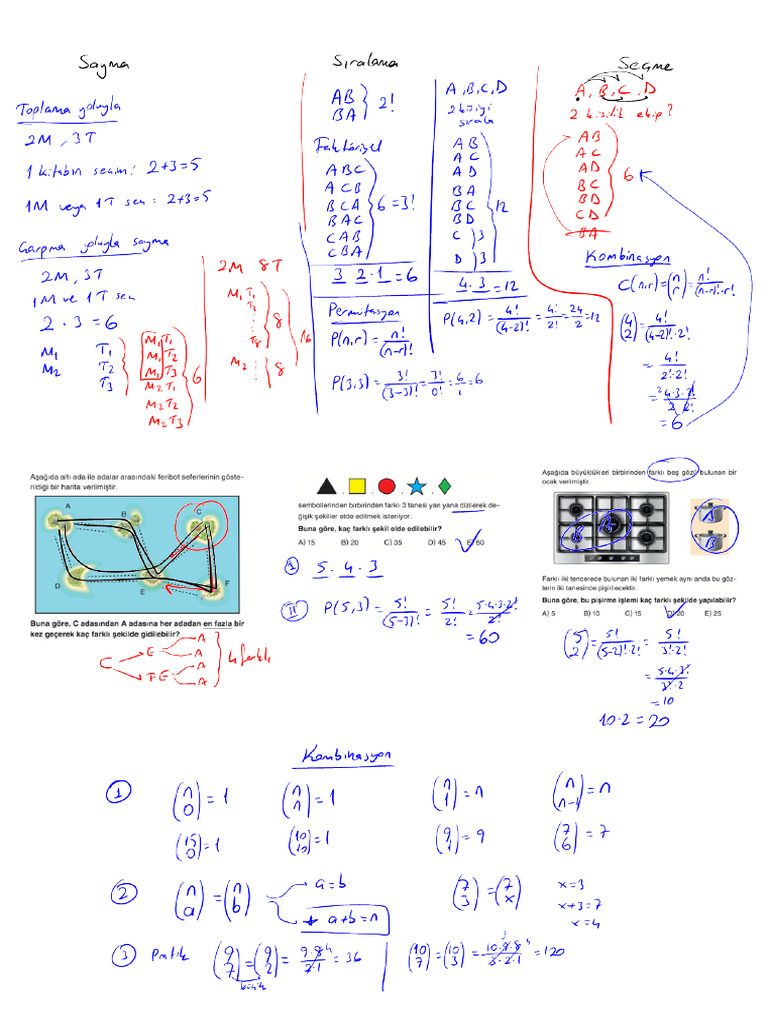 Sayma
Toplama yoluyla
2M, 3T
1 kitabın seçimi: 2+3=5
1M veya 1T seç: 2+3=5
Çarpma yoluyla sayma
2M, 3T
1M ve 1T seç
2 · 3 = 6
M₁ T₁
M₂ T₂
T₃
M₁T₁
M₁T₂
M₁T₃
M₂T₁
M₂T₂
M₂T₃
6
2M 8T
M₁ T₁
T₂
⋮
T₈
8
M₂ ⋮
8
16
Sıralama
AB
BA
2!
Faktöriyel
ABC
ACB
BCA
BAC
CAB
CBA
6=3!
3 2·1=6
Permütasyon
P(n,r)=n!/(n-r)!
P(3,3)=3!/(3-3)!=3!/0!=6/1=6
A,B,C,D
2 kişiyi
sırala
AB
AC
AD
BA
BC
BD
C }3
D }3
12
4·3=12
P(4,2)=4!/(4-2)!=4!/2!=24/2=12
Seçme
A, B, C, D
2 kişilik ekip?
AB
AC
AD
BC
BD
CD
BA
6
Kombinasyon
C(n,r)=(n r)=n!/(n-r)!·r!
(4 2)=4!/(4-2)!·2!
=4!/2!·2!
=4·3·2!/2·2!
=6
Aşağıda altı ada ile adalar arasındaki feribot seferlerinin göste-
rildiği bir harita verilmiştir.
A
B
C
D
E
F
Buna göre, C adasından A adasına her adadan en fazla bir
kez geçerek kaç farklı şekilde gidilebilir?
C
E A
A
F E A
A
4 farklı
sembollerinden birbirinden farklı 3 tanesi yan yana dizilerek de-
ğişik şekiller elde edilmek isteniyor.
Buna göre, kaç farklı şekil elde edilebilir?
A) 15 B) 20 C) 35 D) 45 E) 60
I 5·4·3
II P(5,3)=5!/(5-3)!=5!/2!=5·4·3·2!/2!
=60
Aşağıda büyüklükleri birbirinden farklı beş gözü bulunan bir
ocak verilmiştir.
A
B
A
B
Farklı iki tencerede bulunan iki farklı yemek aynı anda bu göz-
lerin ikisinde pişirilecektir.
Buna göre, bu pişirme işlemi kaç farklı şekilde yapılabilir?
A) 5 B) 10 C) 15 D) 20 E) 25
(5 2)=5!/(5-2)!·2!=5!/3!·2!
=5·4·3!/3!·2
=10
10·2=20
Kombinasyon
1 (n 0)=1 (n n)=1 (n 1)=n (n n-1)=n
(15 0)=1 (10 10)=1 (9 1)=9 (7 6)=7
2 (n a)=(n b) a=b
* a+b=n
(7 3)=(7 x) x=3
x+3=7
x=4
3 Pratik (9 7)=(9 2)=9·8/2·1=36
küçük
(10 7)=(10 3)=10·9·8/3·2·1=120